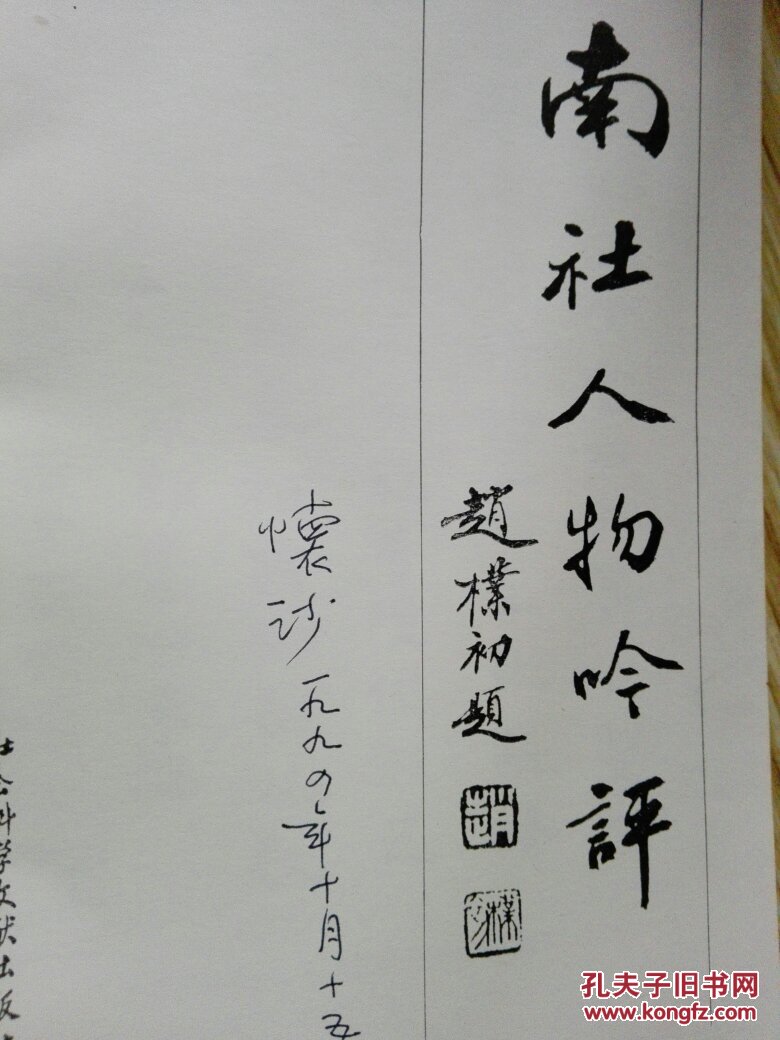 南社人物吟評
趙樸初題
趙
樸初
懷沙 一九九〇年十月十五
社会科学文献出版
孔夫子旧书网
www.kongfz.com